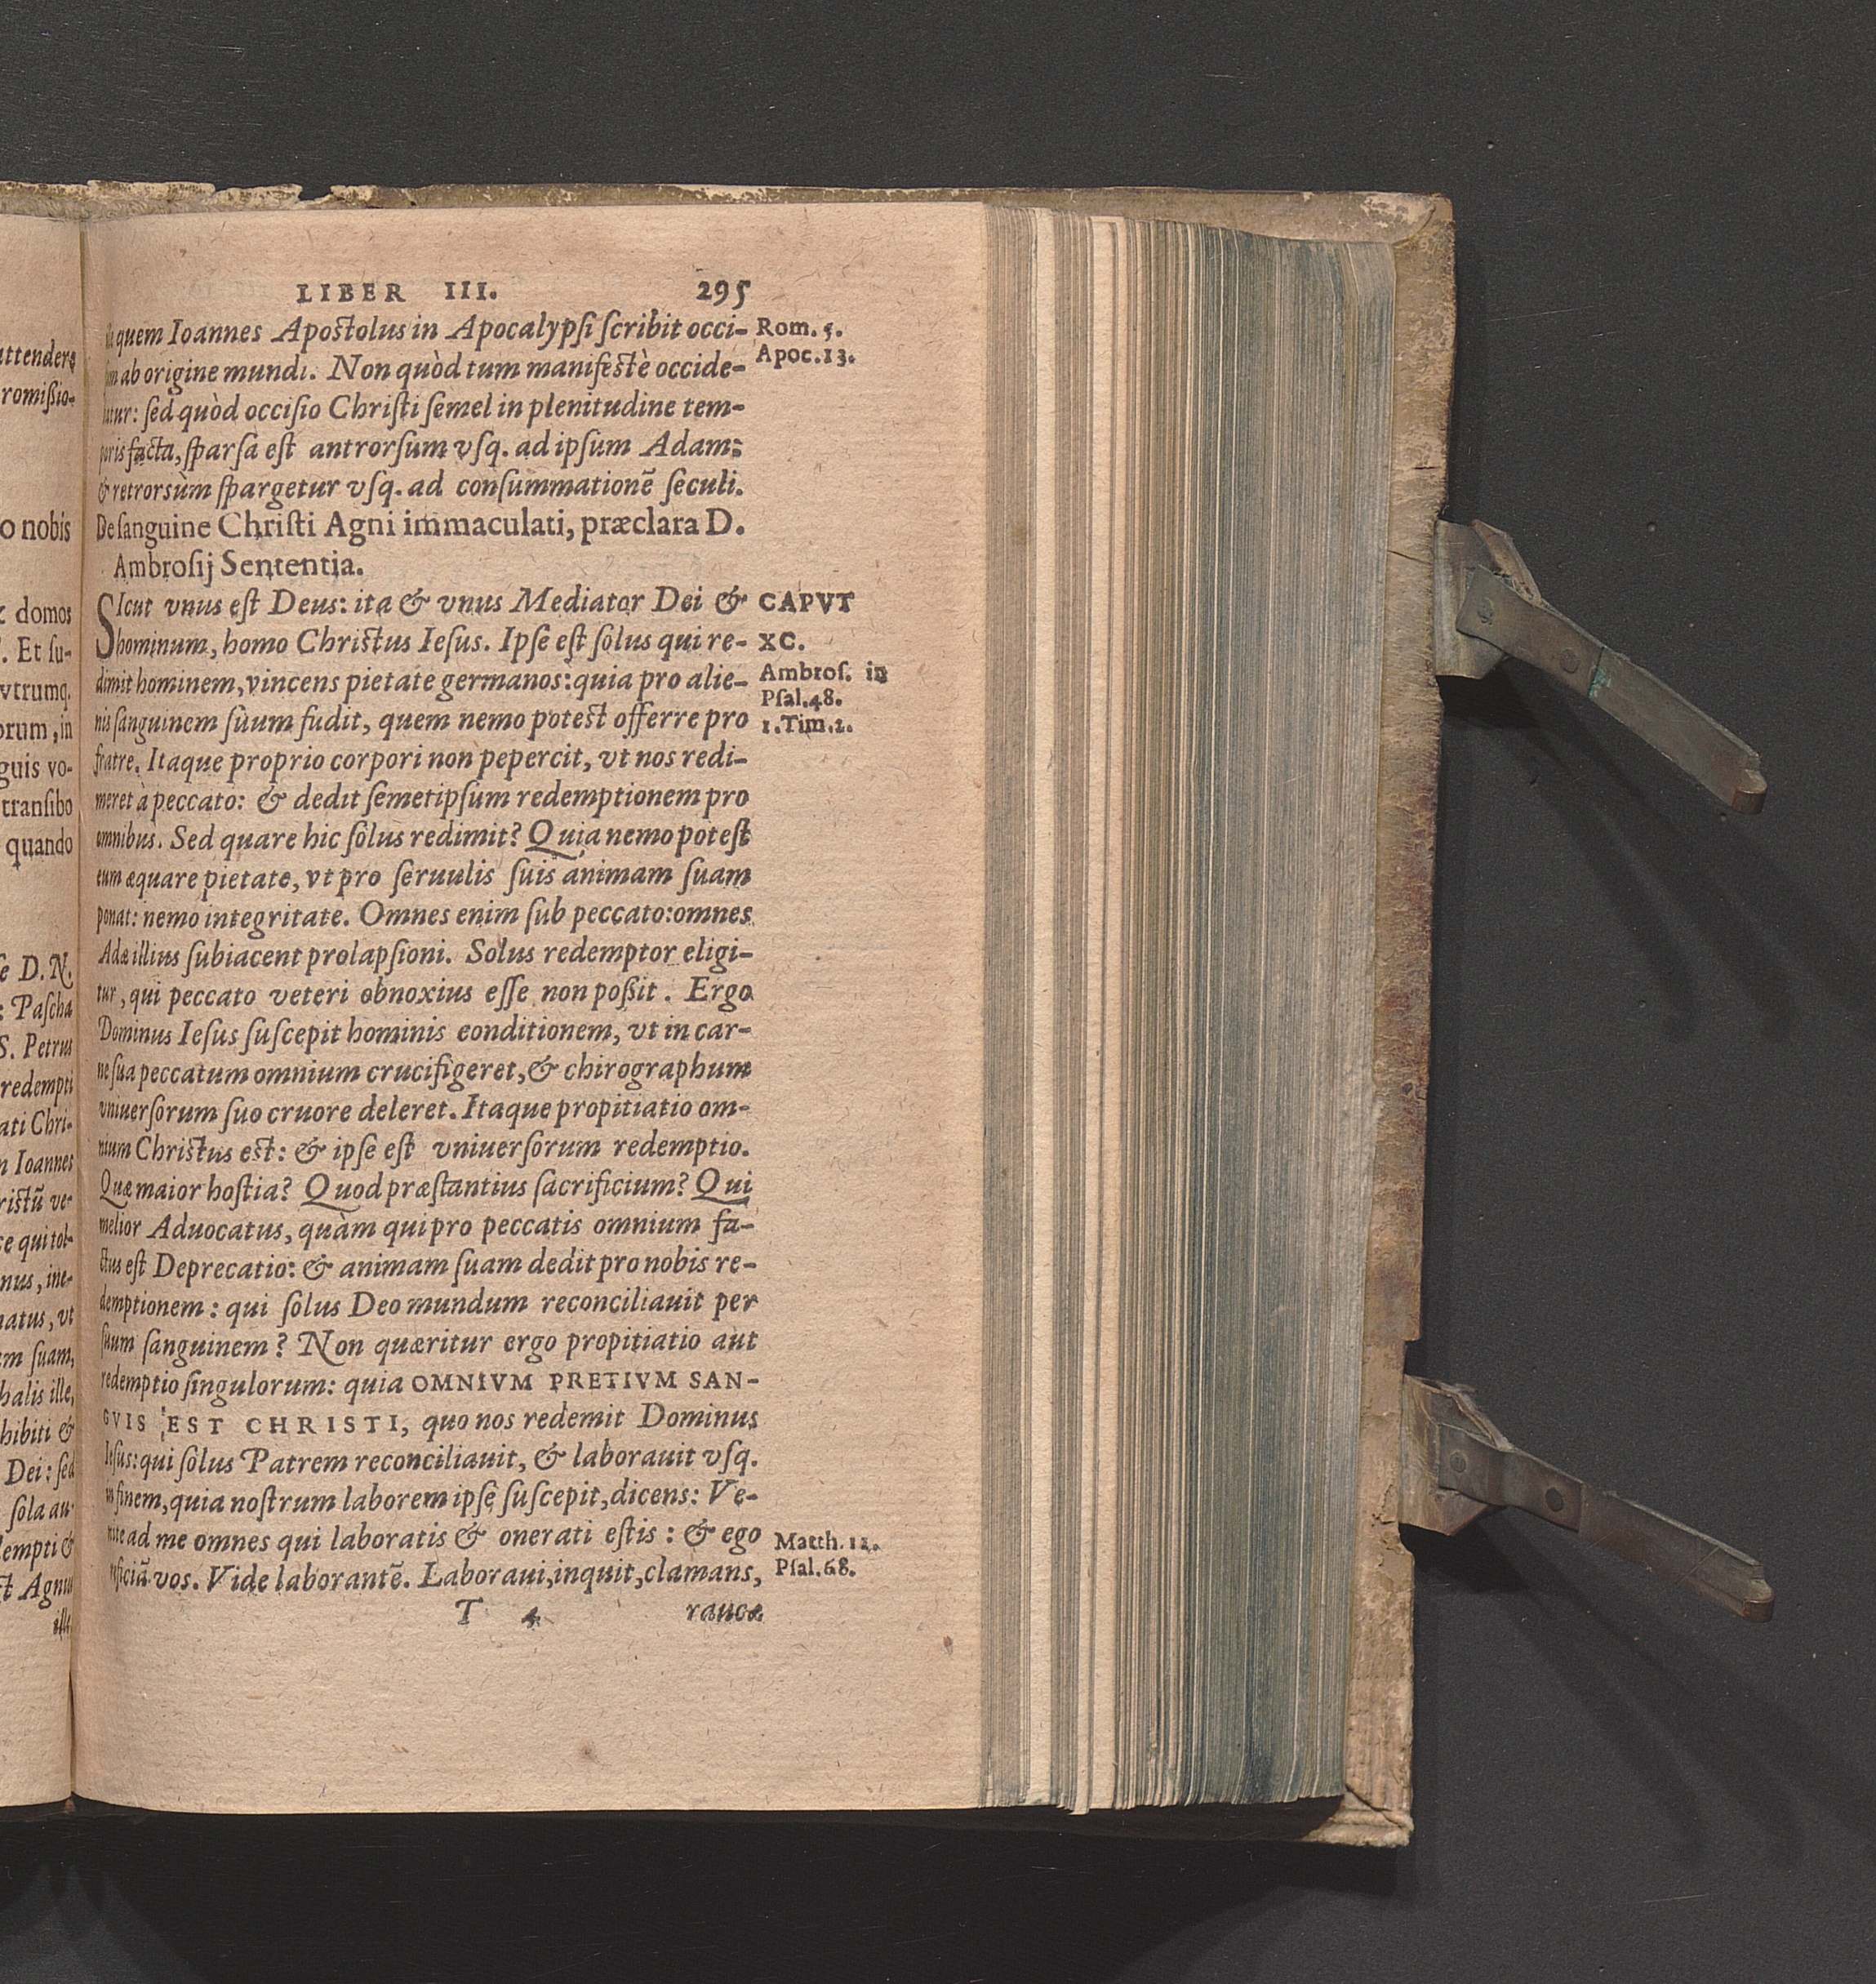 attendere
romißio-
o nobis
domos
. Et ſu-
vtrumq.
orum, in
guis vo-
tranſibo
quando
ſe D. N.
: Paſcha
S. Petrus
redempti
ati Chri-
n Ioannes
riſtū ve-
ce qui tol-
nus, ine-
natus, vt
em ſuam,
halis ille,
hibiti &
Dei: ſed
ſola au-
dempti &
ſt Agnus
ille
LIBER III. 295
quem Ioannes Apoſtolus in Apocalypſi ſcribit occi-
ab origine mundi. Non quòd tum manifeſtè occide-
: ſed quòd occiſio Chriſti ſemel in plenitudine tem-
poris facta, ſparſa eſt antrorſum vſq. ad ipſum Adam:
& retrorsùm ſpargetur vſq. ad conſummationē ſeculi.
De ſanguine Chriſti Agni immaculati, præclara D.
Ambroſij Sententia.
SIcut vnus eſt Deus: ita & vnus Mediator Dei &
hominum, homo Chriſtus Ieſus. Ipſe eſt ſolus qui re-
dimit hominem, vincens pietate germanos: quia pro alie-
nis ſanguinem ſuum fudit, quem nemo poteſt offerre pro
fratre. Itaque proprio corpori non pepercit, vt nos redi-
meret à peccato: & dedit ſemetipſum redemptionem pro
omnibus. Sed quare hic ſolus redimit? Quia nemo poteſt
eum æquare pietate, vt pro ſeruulis ſuis animam ſuam
ponat: nemo integritate. Omnes enim ſub peccato: omnes
Adæ illius ſubiacent prolapſioni. Solus redemptor eligi-
tur, qui peccato veteri obnoxius eſſe non poßit. Ergo
Dominus Ieſus ſuſcepit hominis eonditionem, vt in car-
ne ſua peccatum omnium crucifigeret, & chirographum
vniuerſorum ſuo cruore deleret. Itaque propitiatio om-
nium Chriſtus eſt: & ipſe eſt vniuerſorum redemptio.
Quæ maior hoſtia? Quod præſtantius ſacrificium? Qui
melior Aduocatus, quàm qui pro peccatis omnium fa-
ctus eſt Deprecatio: & animam ſuam dedit pro nobis re-
demptionem: qui ſolus Deo mundum reconciliauit per
ſuum ſanguinem? Non quæritur ergo propitiatio aut
redemptio ſingulorum: quia OMNIVM PRETIVM SAN-
GVIS EST CHRISTI, quo nos redemit Dominus
Ieſus: qui ſolus Patrem reconciliauit, & laborauit vſq.
in finem, quia noſtrum laborem ipſe ſuſcepit, dicens: Ve-
nite ad me omnes qui laboratis & onerati eſtis: & ego
reficiā vos. Vide laborantē. Laboraui, inquit, clamans,
T 4 raucæ
Rom. 5.
Apoc. 13.
CAPVT
XC.
Ambroſ. in
Pſal. 48.
1. Tim. 2.
Matth. 11.
Pſal. 68.